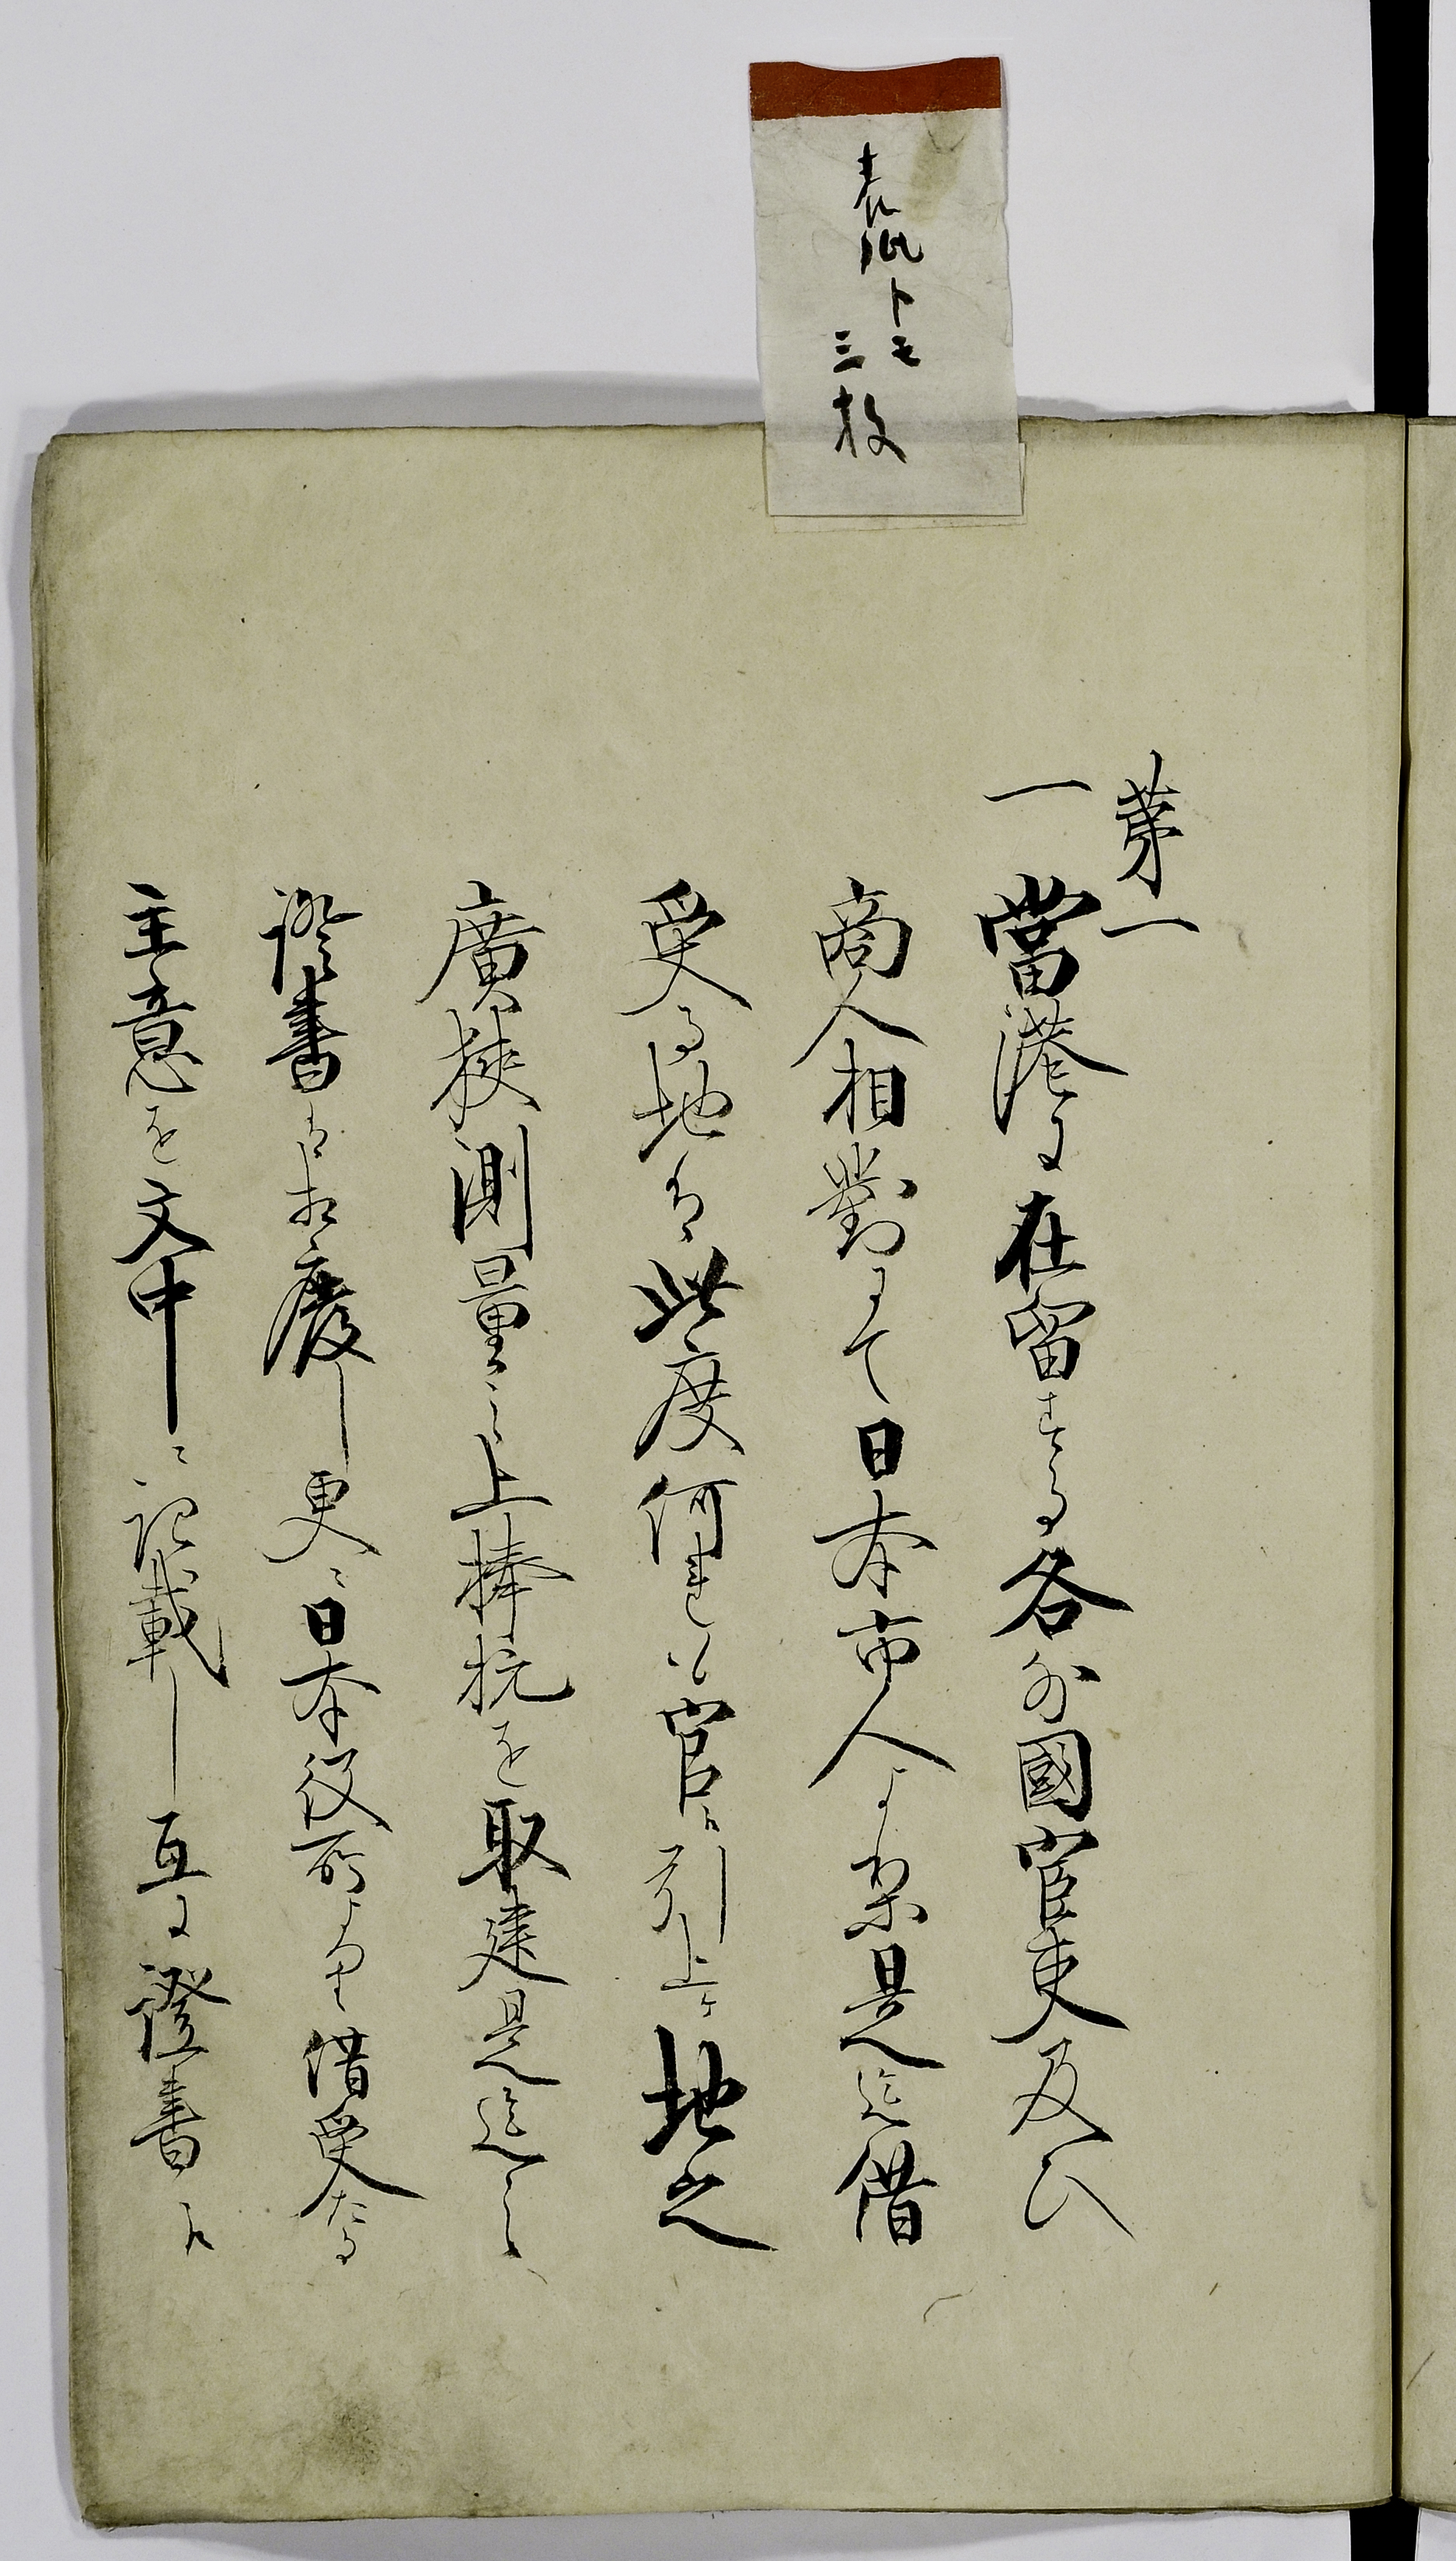 表紙トモ
三枚
第一
一當港に在留する各外國官吏及ひ
商人相對にて日本市人より是迄借
受る地は此度何れも官に引上ケ地之
廣狹測量之上棒杭を取建是迄之
證書は相廢し更ニ日本役所より借受たる
主意を文中ニ記載し互に證書に